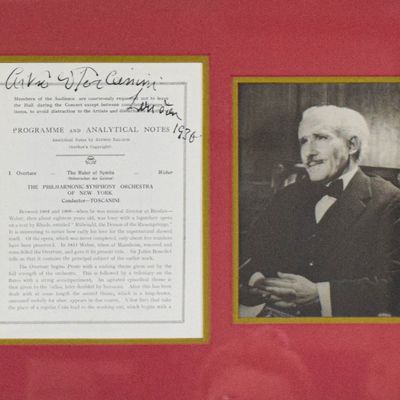 Arturo Toscanini
London
1930
Members of the Audience are courteously requested not to leave
the Hall during the Concert except between
items, to avoid distraction to the Artists and
PROGRAMME and ANALYTICAL NOTES
Analytical Notes by
(Author's Copyright)
1. Overture - The Ruler of Spirits - Weber
(Beherrscher der Geister)
THE PHILHARMONIC-SYMPHONY ORCHESTRA
OF NEW YORK
Conductor—TOSCANINI
Between 1804 and 1806—when he was musical director at Breslau—
Weber, then about eighteen years old, was busy with a legendary opera
on a text by Rhode, entitled "Rübezahl, the Demon of the
It is interesting to notice how early his love for the supernatural showed
itself. Of the opera, which was never completed, only about five numbers
have been preserved. In 1811 Weber, when at Mannheim, rescored and
the Overture, and gave it its present title. Sir Julius Benedict
tells us that it contains the principal subject of the earlier work.
The Overture begins Presto with a rushing theme given out by the
full strength of the orchestra. This is followed by a
flutes with a string accompaniment. An agitated episodical theme is
then given to the 'cellos, later doubled by bassoons. After this has been
dealt with at some length the second theme, which is a long-drawn,
melody for oboe, appears in the
place of a regular Coda lead to the working out, which begins with a